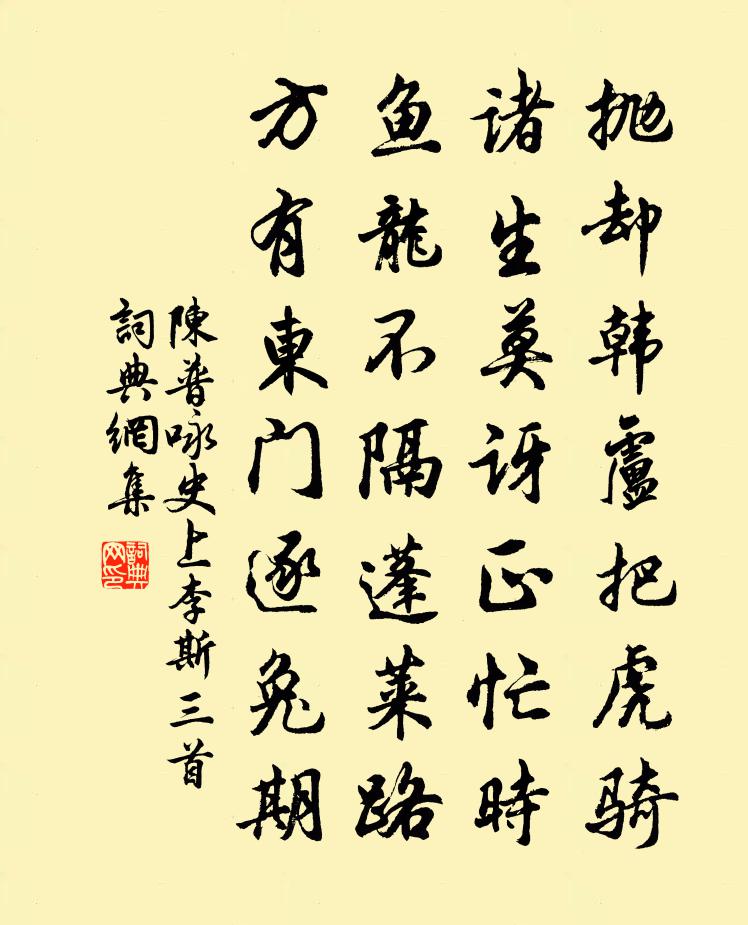 抛却韩盧把虎骑
诸生莫讶正忙時
鱼龍不隔蓬莱路
方有東门逐兔期
陳普咏史上李斯三首
詞典網集
詞典网印